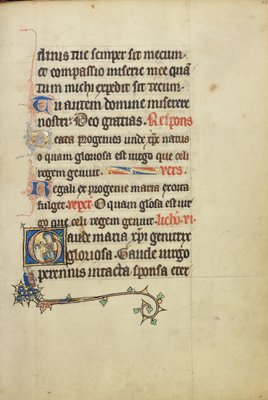 ftuus tue semper sit mecum
et compassio miserie mee quā
tum michi expedit sit tecum.
Tu autem domine miserere
nostri. Deo gratias. Respons
Beata progenies unde xp̄c natus
o quam gloriosa est uirgo que celi
regem genuit. vers.
Regali ex progenie maria exorta
fulget. repet. O quam glosa est uir
go que celi regem genuit.
Gaude maria xp̄i genitrix
gloriosa. Gaude uirgo
perennis intacta sponsa eter